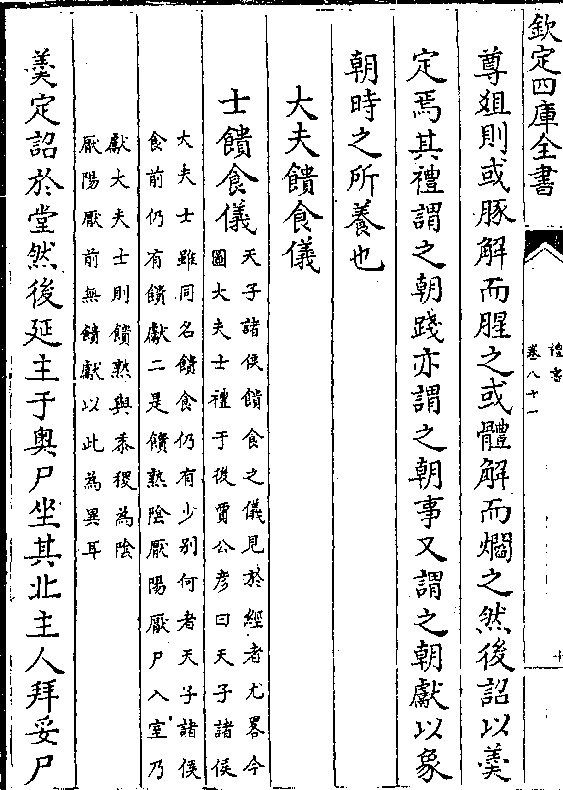 欽定四庫全書
禮書
卷八十一
十
尊俎則或豚解而腥之或體解而爓之然後詔以羮
定焉其禮謂之朝踐亦謂之朝事又謂之朝獻以象
朝時之所養也
大夫饋食儀
士饋食儀
天子諸侯饋食之儀見於經者尤畧今
圖大夫士禮于後賈公彦曰天子諸侯
大夫士雖同名饋食仍有少别何者天子諸侯
食前仍有饋獻二是饋熟隂厭陽厭尸入室乃
獻大夫士則饋熟與黍稷為隂
厭陽厭前無饋獻以此為異耳
羮定詔於堂然後延主于奥尸坐其北主人拜妥尸